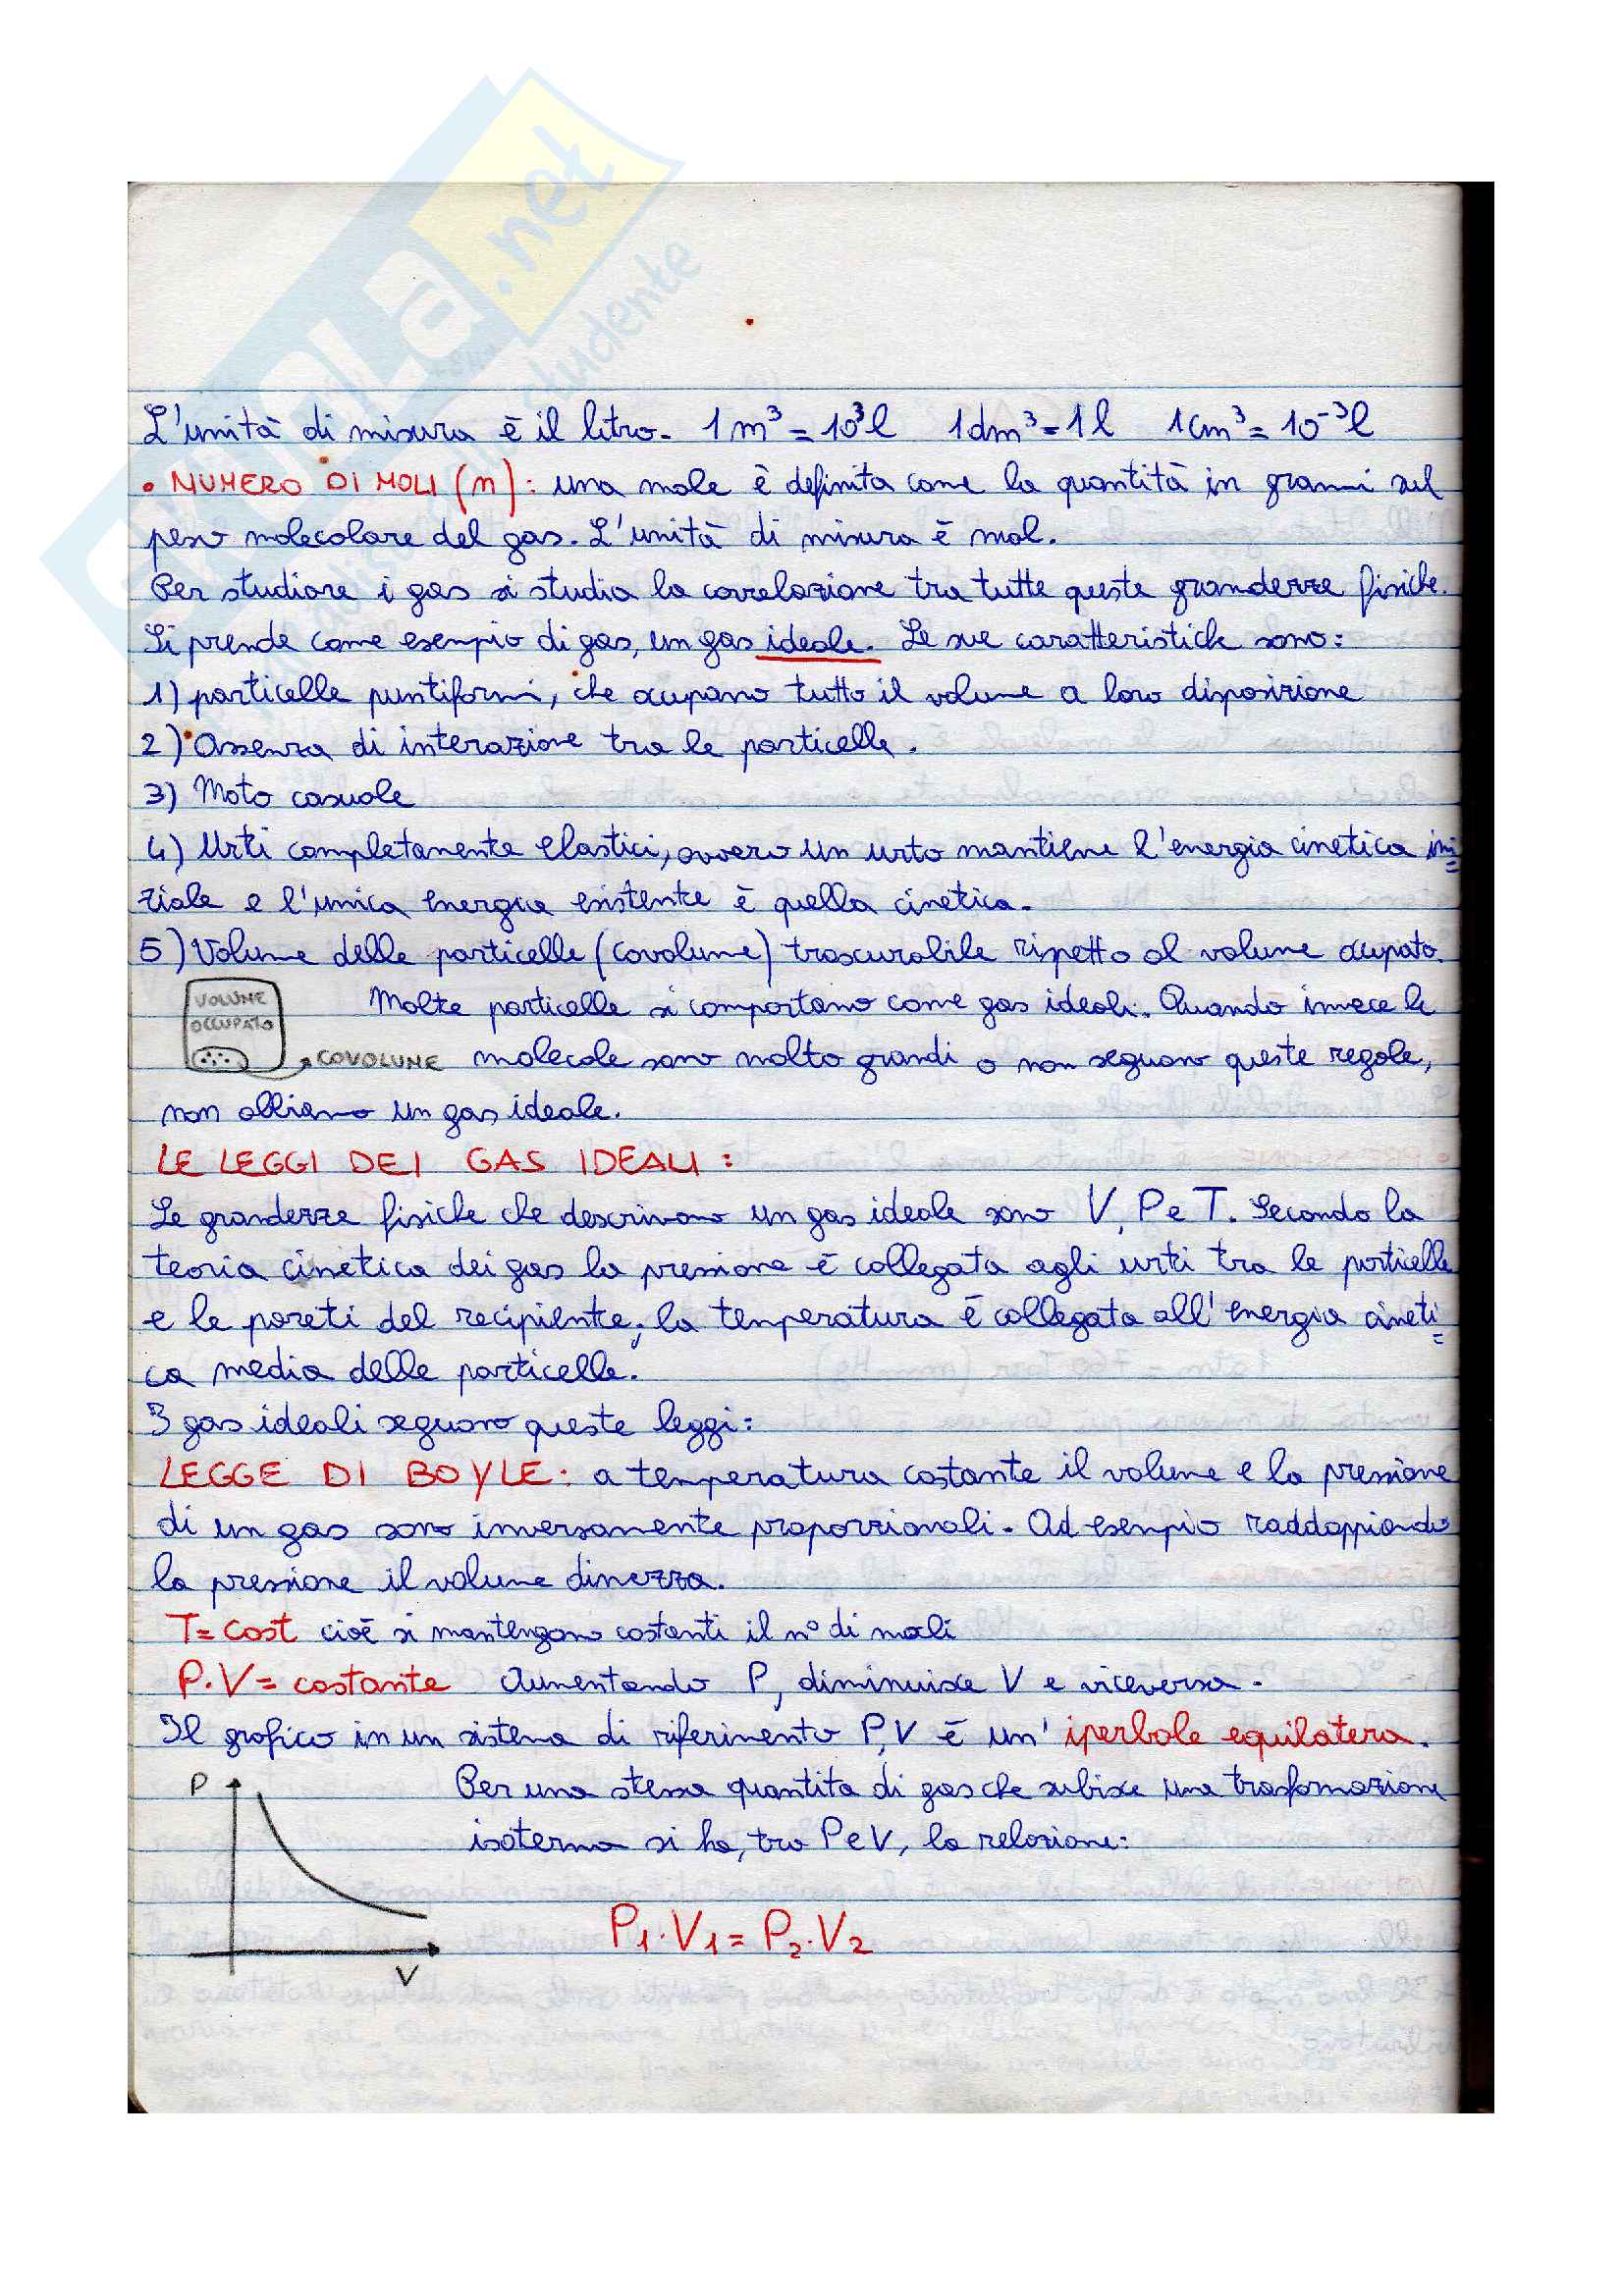 SKUOLA.net
studente
L'unità di misura è il litro. 1m³=10³l 1dm³=1l 1cm³=10⁻³l
• NUMERO DI MOLI (n): una mole è definita come la quantità in grammi sul
peso molecolare del gas. L'unità di misura è mol.
Per studiare i gas si studia la correlazione tra tutte queste grandezze fisiche.
Si prende come esempio di gas, un gas ideale. Le sue caratteristich sono:
1) particelle puntiformi, che occupano tutto il volume a loro disposizione
2) Assenza di interazione tra le particelle.
3) Moto casuale
4) Urti completamente elastici, ovvero un urto mantiene l'energia cinetica ini=
ziale e l'unica energia esistente è quella cinetica.
5) Volume delle particelle (covolume) trascurabile rispetto al volume occupato.
VOLUME
OCCUPATO
Molte particelle si comportano come gas ideali. Quando invece le
COVOLUME molecole sono molto grandi o non seguono queste regole,
non abbiamo un gas ideale.
LE LEGGI DEI GAS IDEALI:
Le grandezze fisiche che descrivono un gas ideale sono V, P e T. Secondo la
teoria cinetica dei gas la pressione è collegata agli urti tra le particelle
e le pareti del recipiente; la temperatura è collegata all'energia cineti=
ca media delle particelle.
I gas ideali seguono queste leggi:
LEGGE DI BOYLE: a temperatura costante il volume e la pressione
di un gas sono inversamente proporzionali. Ad esempio raddoppiando
la pressione il volume dimezza.
T=cost cioè si mantengono costanti il n° di moli
P·V=costante Aumentando P, diminuisce V e viceversa.
Il grafico in un sistema di riferimento P,V è un'iperbole equilatera.
P
Per una stessa quantita di gas che subisce una trasformazione
isoterma si ha, tra P e V, la relazione:
P₁·V₁=P₂·V₂
V